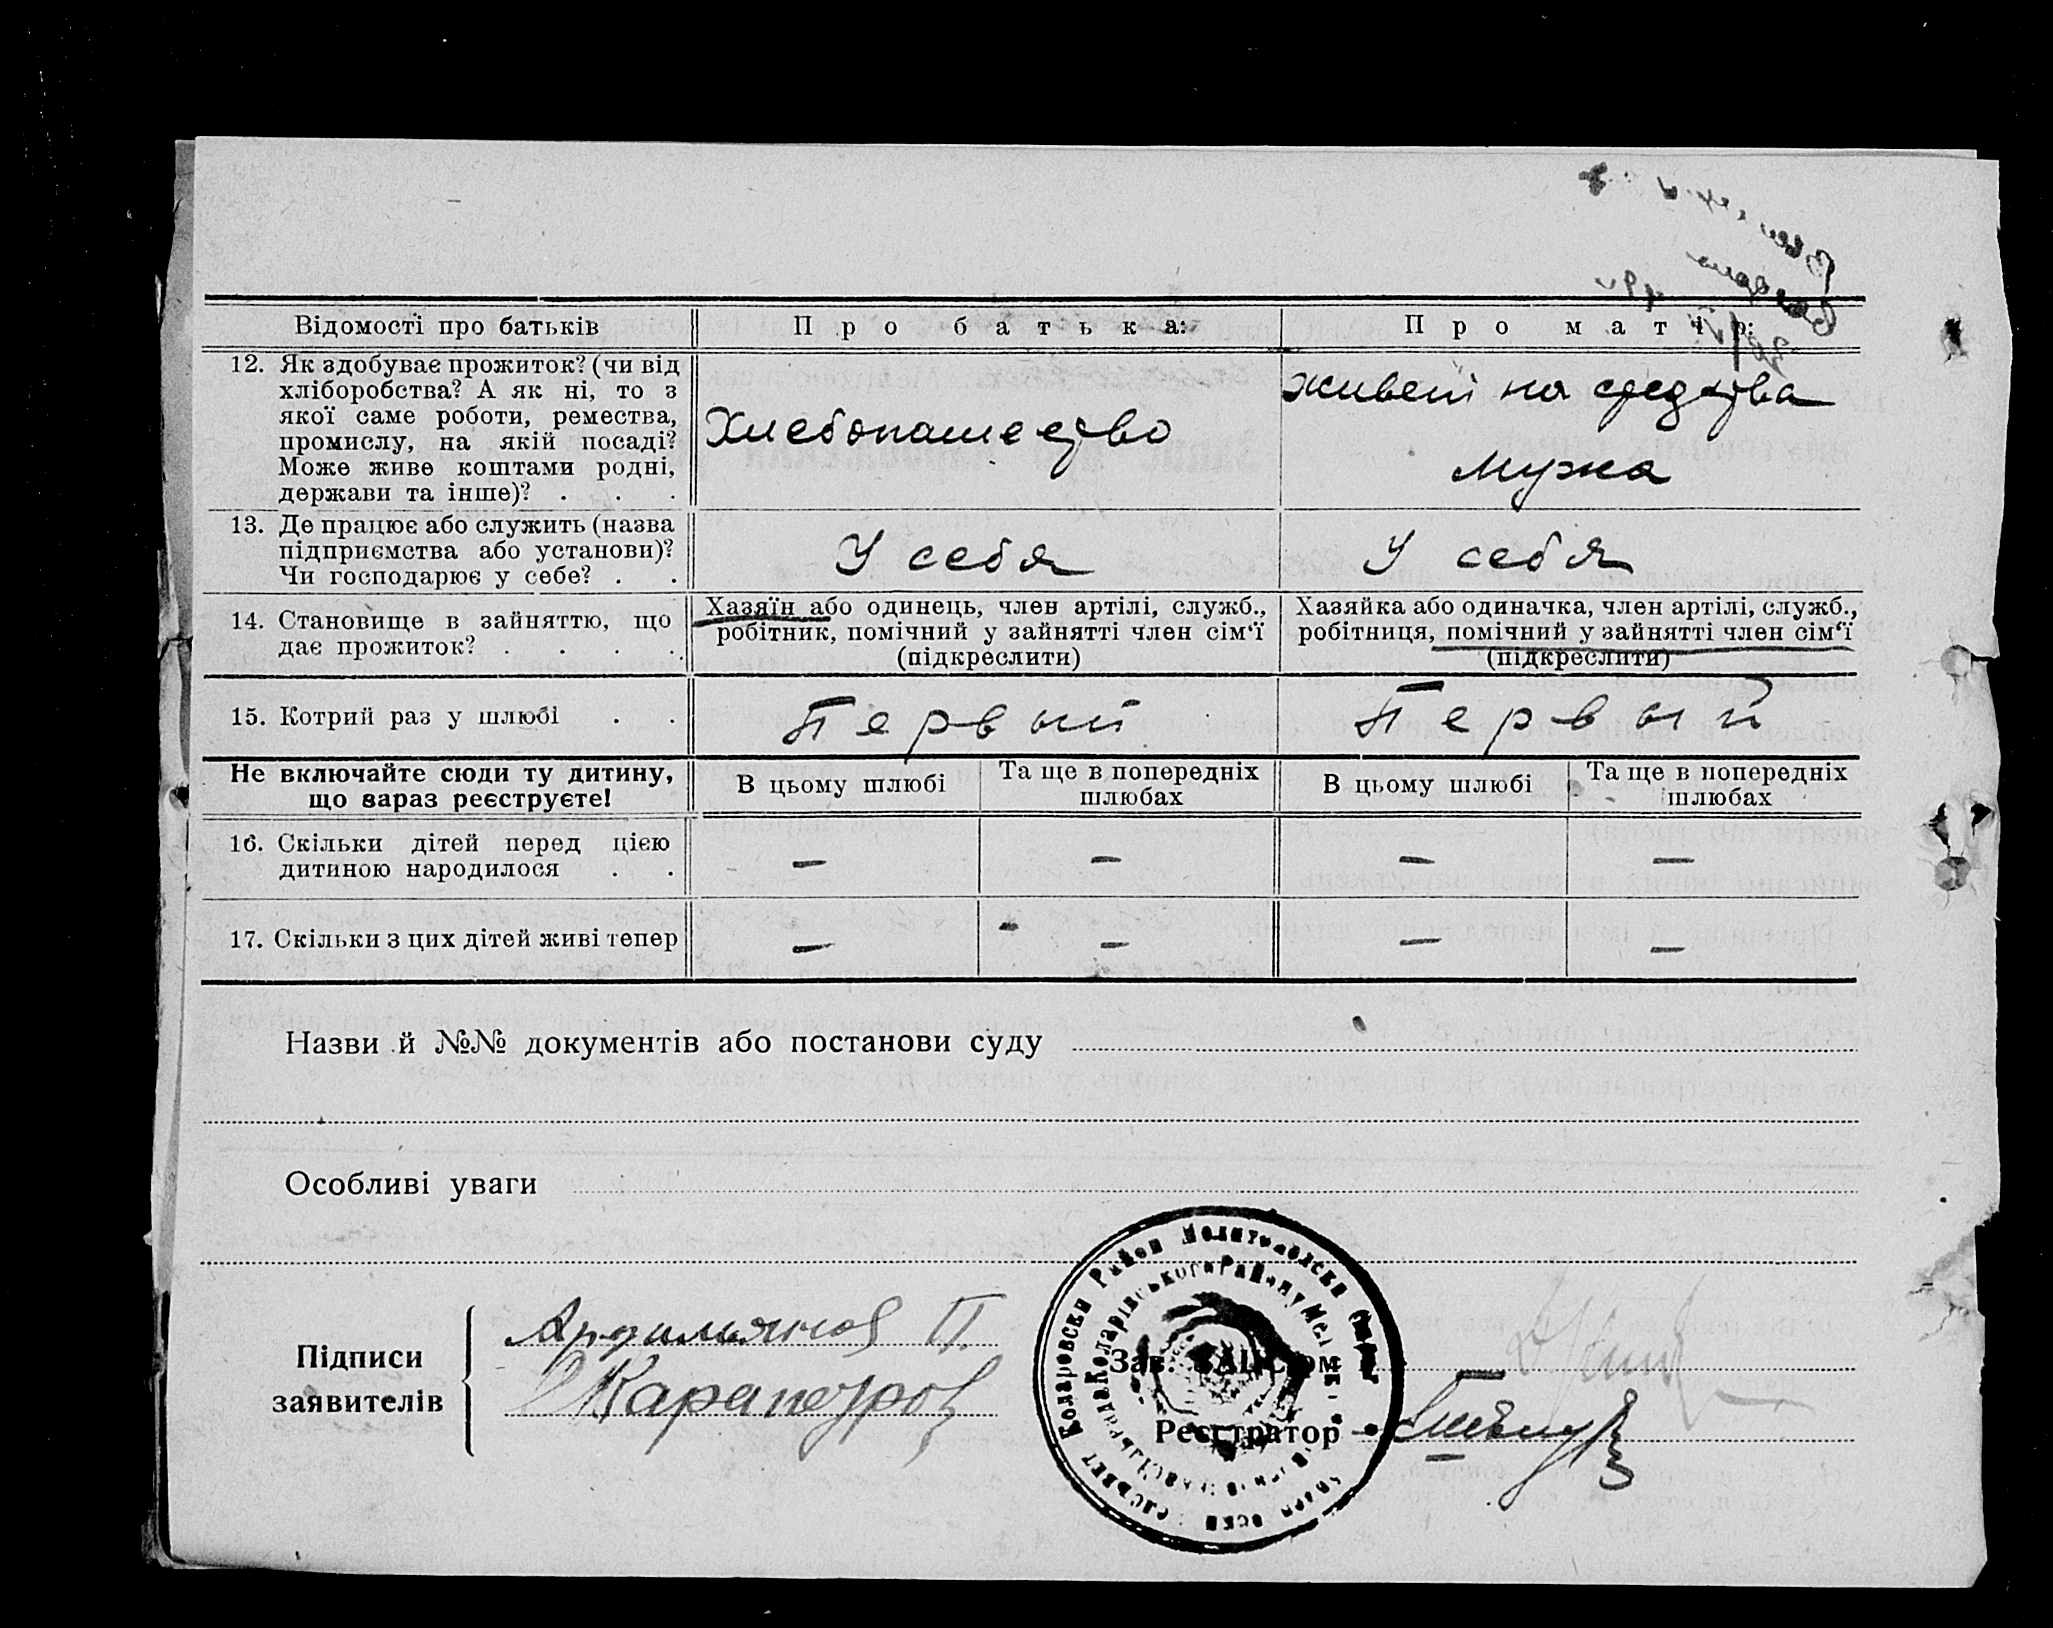 Відомості про батьків
Про батька:
Про матір:
12. Як здобуває прожиток? (чи від
хліборобства? А як ні, то з
якої саме роботи, ремества,
промислу, на якій посаді?
Може живе коштами родні,
держави та інше)? . . .
Хлебопашество
живет на средства
мужа
13. Де працює або служить (назва
підприємства або установи)?
Чи господарює у себе? . .
У себя
У себя
14. Становище в зайняттю, що
дає прожиток? . . . . .
Хазяїн або одинець, член артілі, служб.,
робітник, помічний у зайнятті член сім'ї
(підкреслити)
Хазяйка або одиначка, член артілі, служб.,
робітниця, помічний у зайнятті член сім'ї
(підкреслити)
15. Котрий раз у шлюбі . .
Первый
Первый
Не включайте сюди ту дитину,
що зараз реєструєте!
В цьому шлюбі
Та ще в попередніх
шлюбах
В цьому шлюбі
Та ще в попередніх
шлюбах
16. Скільки дітей перед цією
дитиною народилося . .
— — — —
17. Скільки з цих дітей живі тепер
— — — —
Назви й №№ документів або постанови суду
Особливі уваги
Підписи
заявителів
Ардильянов П.
Карапетров
Зав. ЗАГС'ом
Реєстратор
Коларовски Район